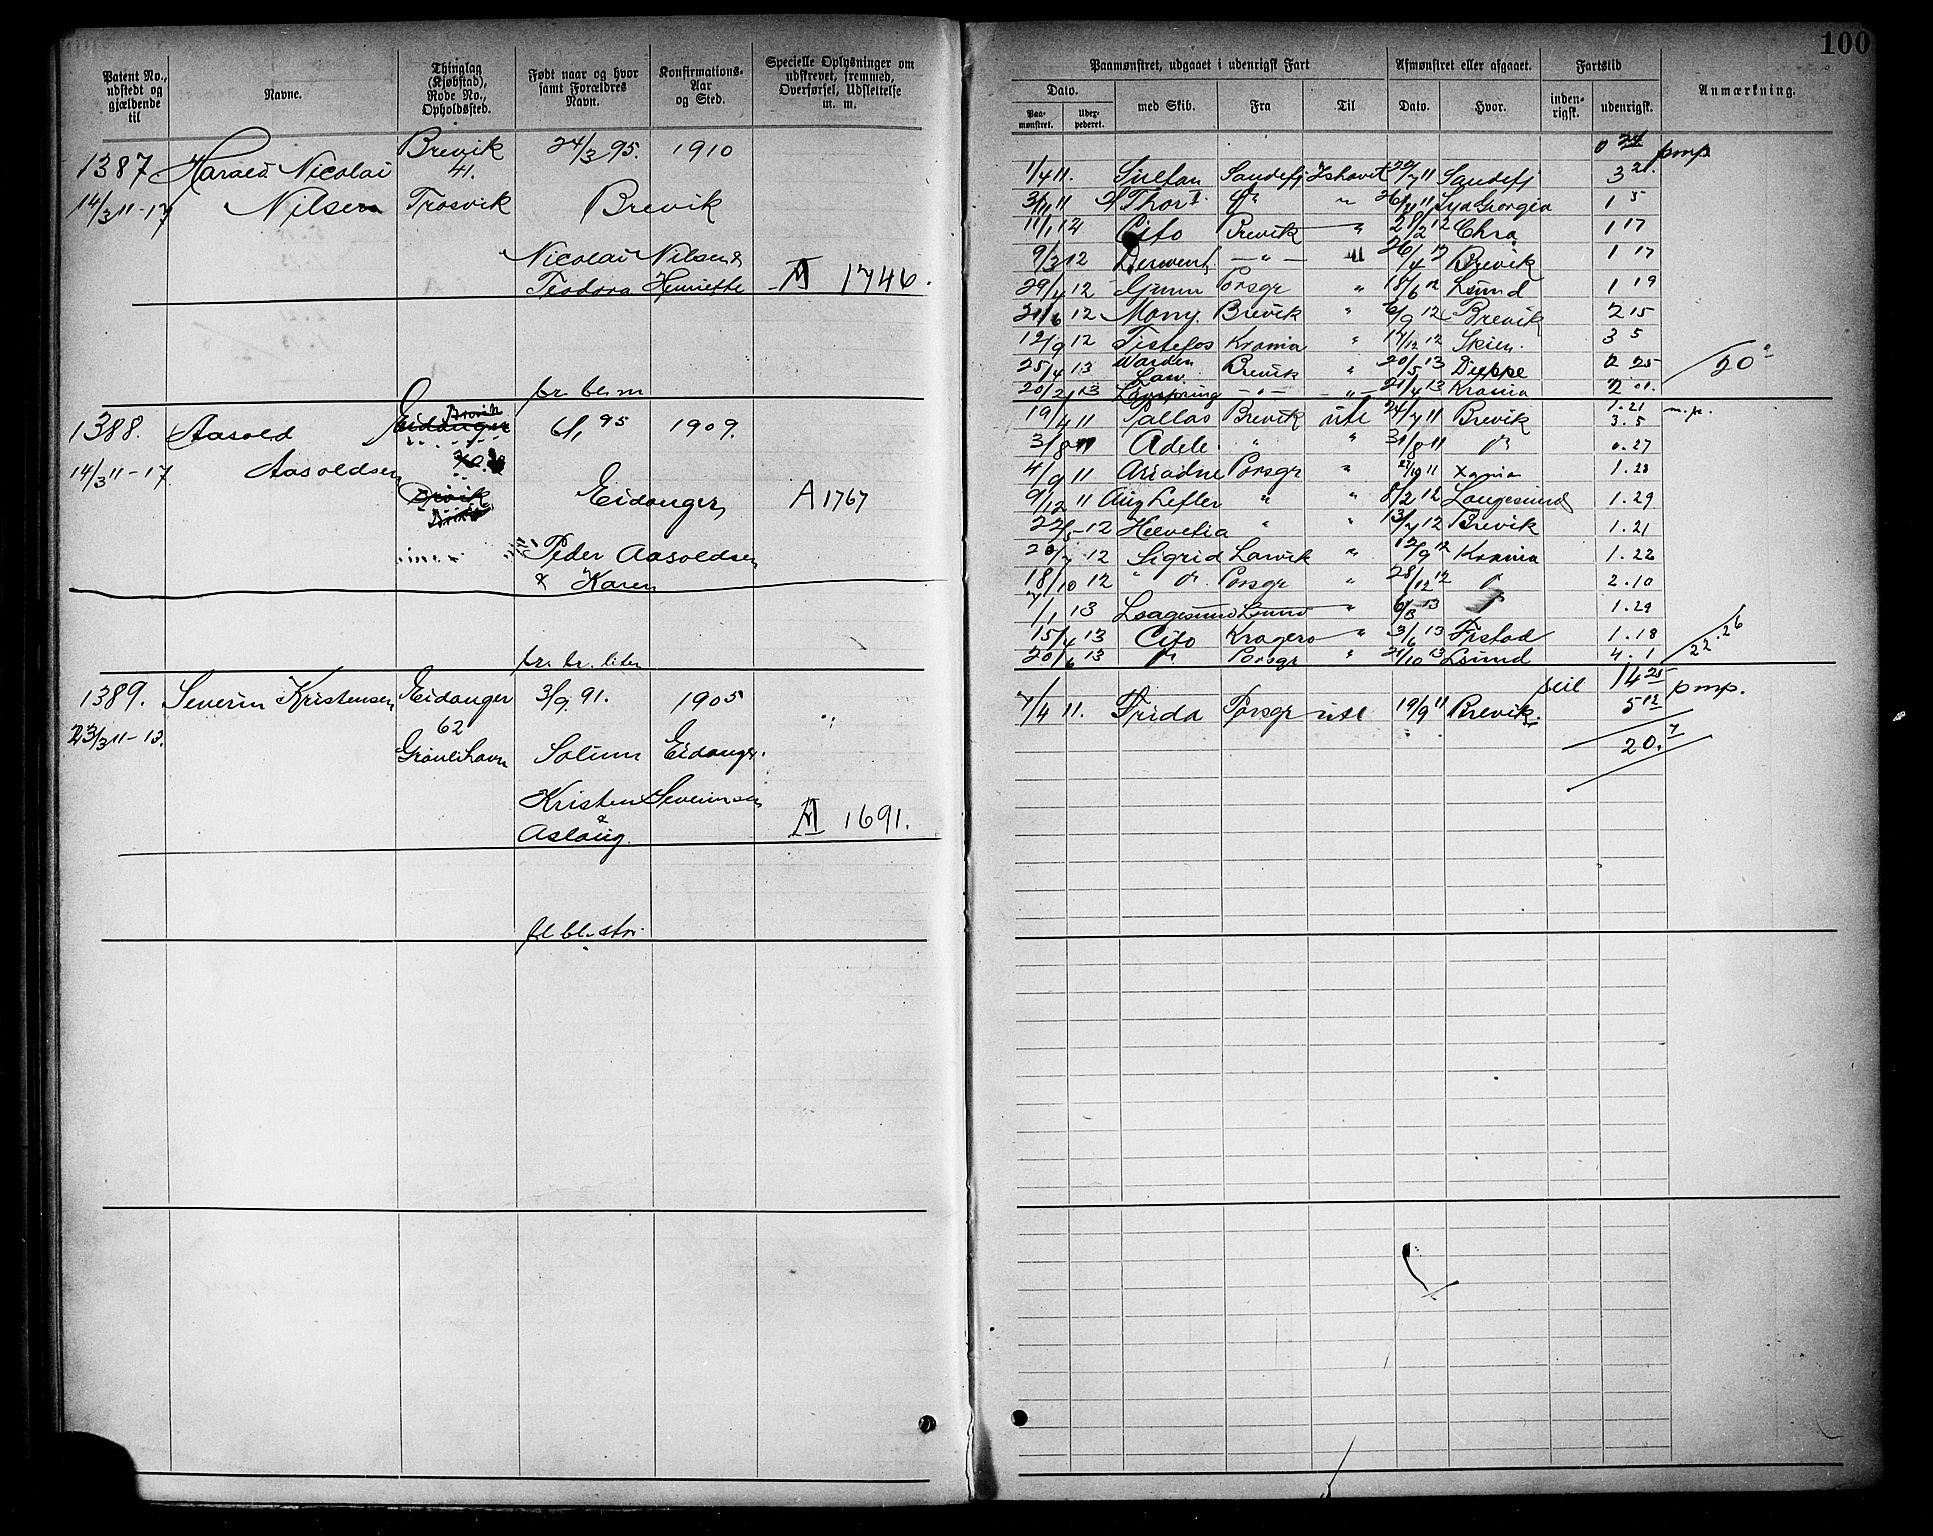 100
Patent No., udstedt og gjældende til
Navne.
Thinglag (Kjøbstad), Rode No., Opholdssted.
Født naar og hvor samt Forældres Navn.
Konfirmations- Aar og Sted.
Specielle Oplysninger om udskrevet, fremmød, Overførsel, Udslettelse m. m.
Paamønstret, udgaaet i udenrigsk Fart
Afmønstret eller afgaaet.
Fartstid
Anmærkning.
Dato.
Paa- mønstret.
Udex- pederet.
med Skib.
Fra
Til
Dato.
Hvor.
inden- rigsk.
udenrigsk.
1387 Harald Nicolai Brevik 24/3 95. 1910
41.
14/3 11-17 Nilsen Trosvik Brevik
Nicolai Nilsen &
Teodora Henriette A 1746.
br. bl. m
1388. Aasold Eidanger Brevik 6/1 95 1909.
14/3 11-17 Aasoldsen
Brevik Eidanger A 1767
Peder Aasoldsen
& Karen
br. br. liten
1389. Severin Kristensen Eidanger 3/9. 91. 1905
23/3 11-13. 62
Grønlihavn Solum Eidanger.
Kristen Severinsen
&
Aslaug. A 1691.
bl bl. stor
0 24 pmp
1/4 11. Sandefj Ishavet 11 Sandefj 3 21.
11 Thor I " 11 Syd Georgia 1 5
11/1 12 Cito Brevik " 28/2 12 Chra 1 17
9/3 12 Derwent - " - 26/4 12 Brevik 1 17
29/4 12 Gunn Porsgr " 18/6 12 Lsund 1 19
21/6 12 Mony. Brevik " 6/9 12 Brevik 2 15
12/9 12 Tistefos Krania " 17/12 12 Skien. 3 5
25/4 13 Warden Law. Brevik " 20/5 13 Dieppe 0 25
20/2 13 - " - - " - 21/4 13 Krania 2 01.
20 0
19/4 11 Pallas Brevik ute 24/7 11 Brevik 1.21 m.p.
3.5
3/8 11 Adele " " 31/8 11 " 0.27
4/9 11 Ariadne Porsgr " 27/10 11 Xania 1.23
9/12 11 Aug Lefler " " 8/2 12 Langesund 1.29
22/5 - 12 Helvetia " " 13/7 12 Brevik 1.21
20/7 12 Sigrid Larvik " 12/9 12 Krania 1.22
18/10 12 " Porsgr " 28/12 12 " 2.10
7/1 13 Lsund " 6/3 13 " 1.29
15/4 13 Cito Kragerø " 3/6 13 Frstad 1.18
20/6 13 " Porsgr " 21/10 13 Lsund 4.1
22.26
seil 14 25 pmp.
7/4 11. Frida Porsgr ute 19/9 11 Brevik. 5 12
20. 7